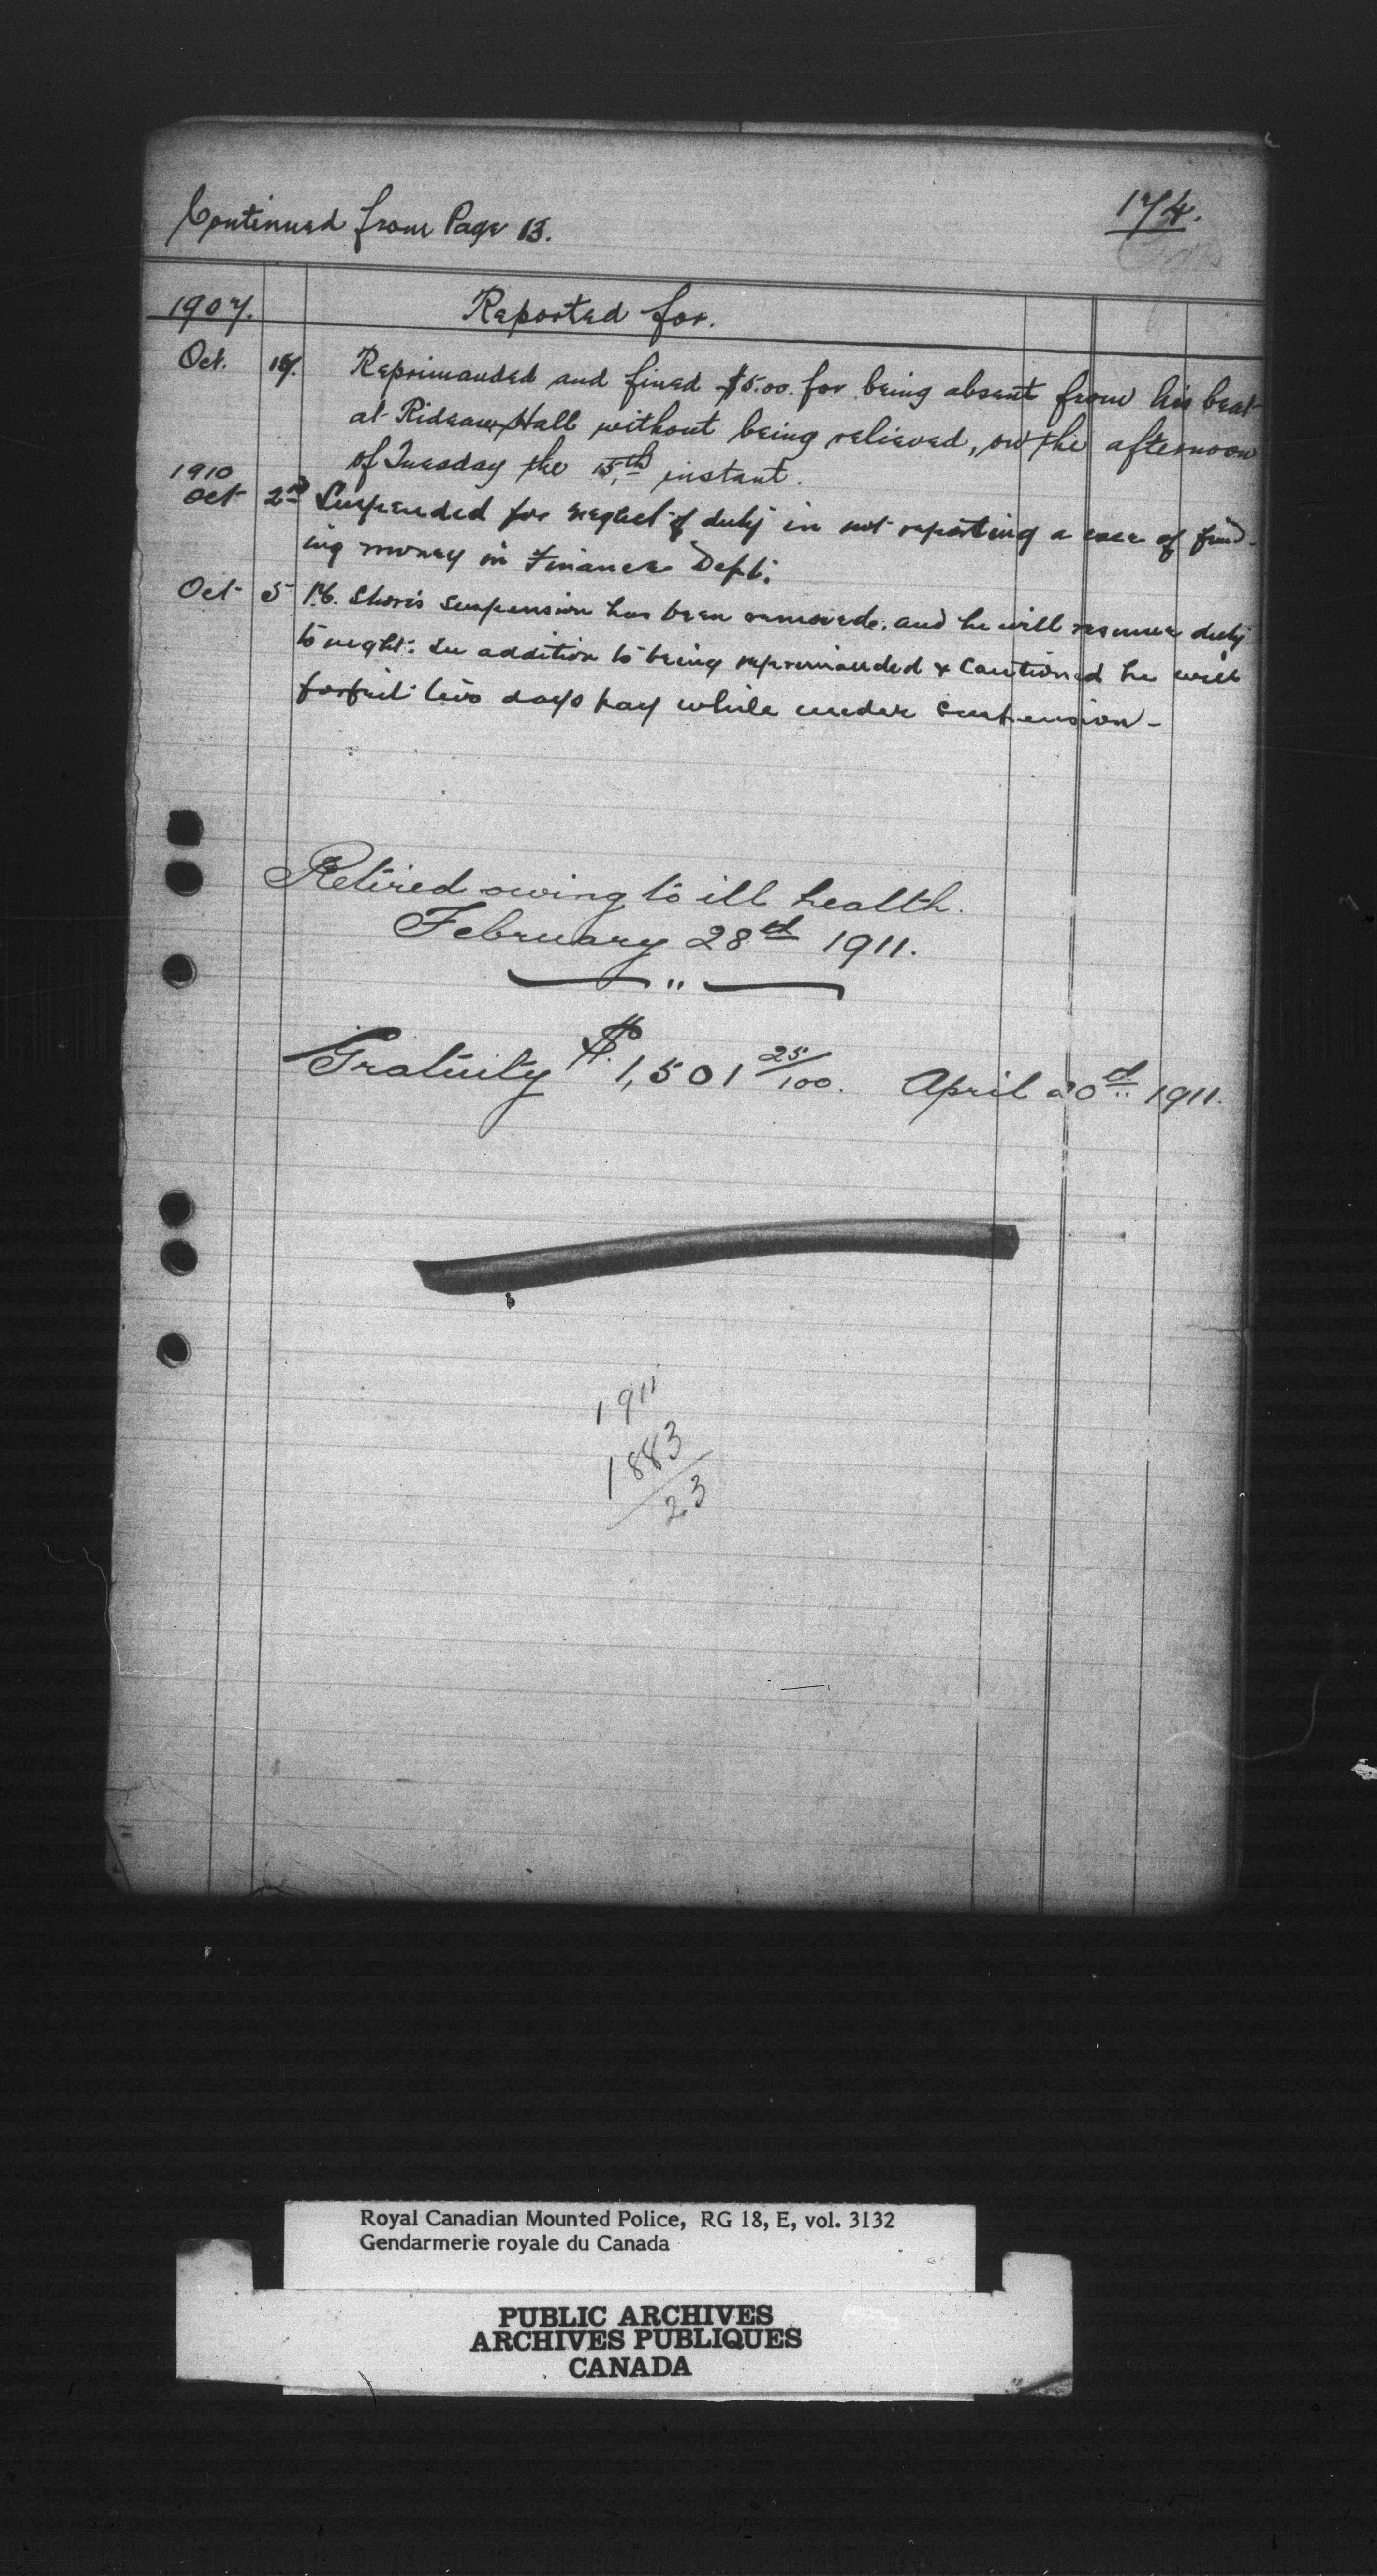 Continued from Page 13.
174.
1907. Reported for.
Oct. 17. Reprimanded and fined $5.00. for being absent from his beat
at Rideau Hall without being relieved, on the afternoon
of Tuesday the 15th, instant.
1910
Oct 2nd Suspended for neglect of duty in not reporting a case of find-
ing money in Finance Dept.
Oct 5 P.C. Shore's suspension has been removed. and he will resume duty
to night. In addition to being reprimanded & Cautioned he will
forfeit two days pay while under suspension -
Retired owing to ill health.
February 28th 1911.
Gratuity $ 1,501 25/100. April 20th 1911.
1911
1883
23
Royal Canadian Mounted Police, RG 18, E, vol. 3132
Gendarmerie royale du Canada
PUBLIC ARCHIVES
ARCHIVES PUBLIQUES
CANADA